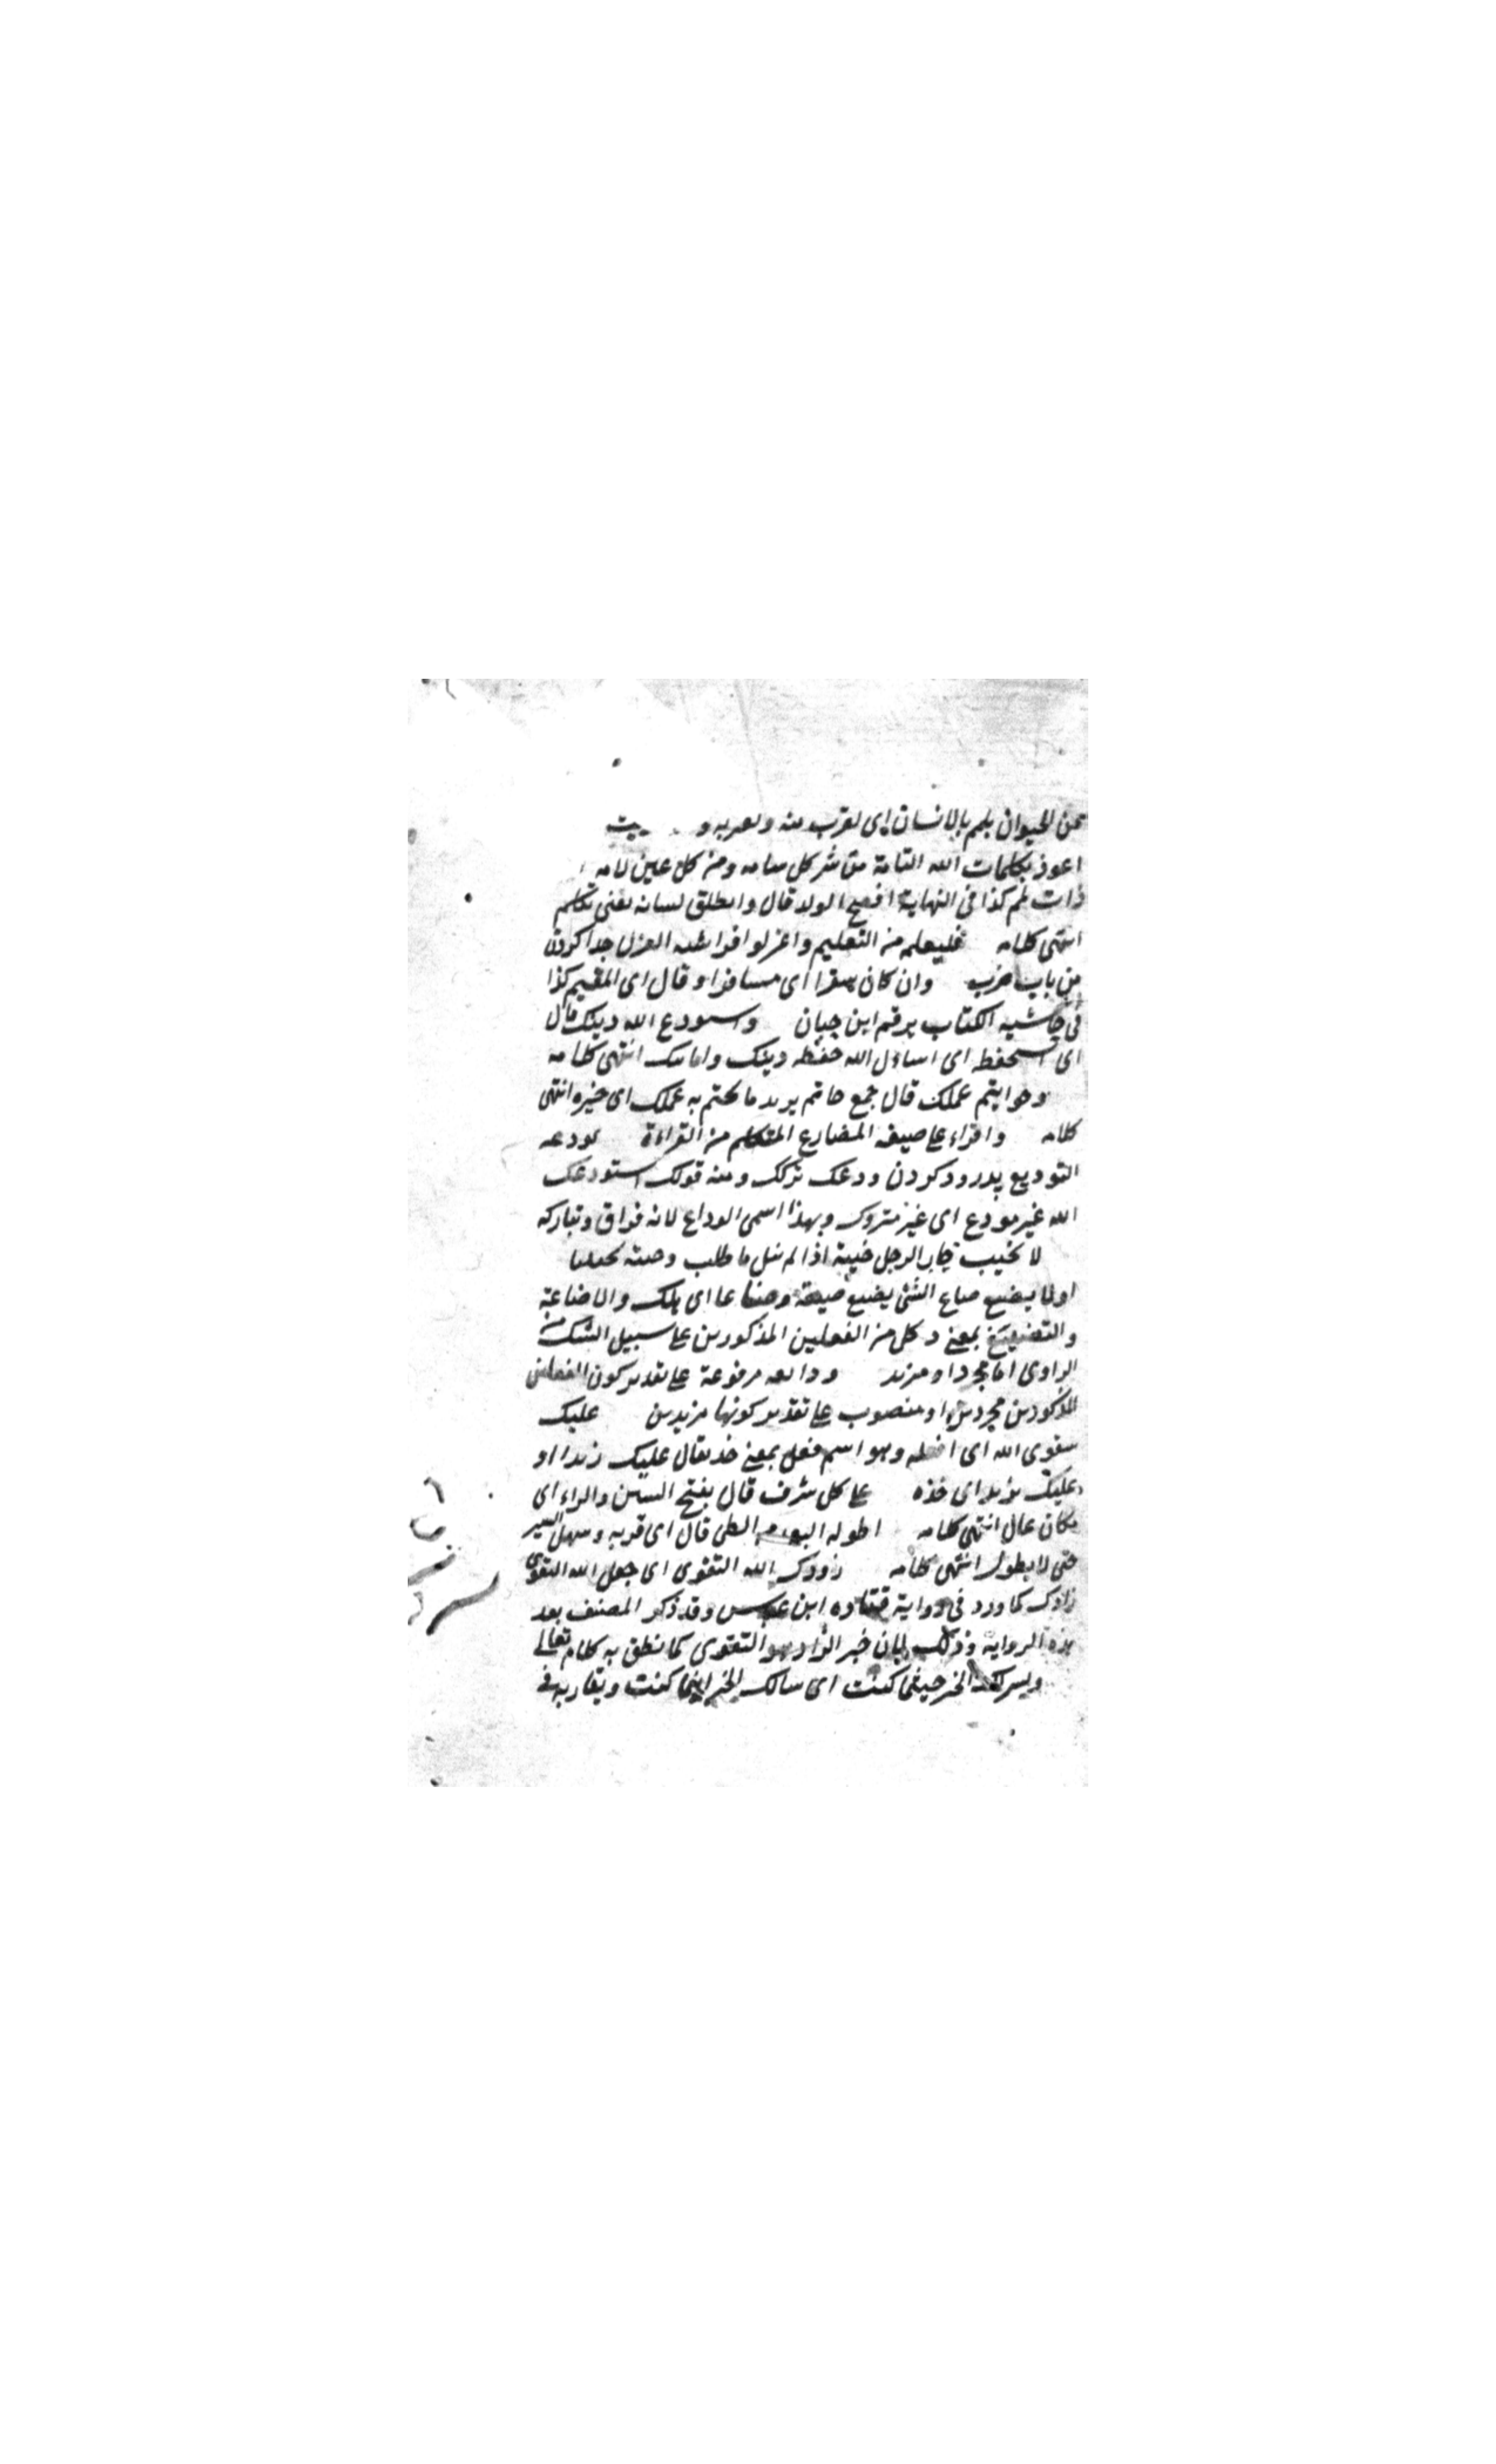 من الحيوان يلم بالانسان اى يقرب منه و يعتريه و يت
اعوذ بكلمات الله التامة من شر كل سامه ومن كل عين لامه
ذات لمم كذا فى النهاية افصح الولد قال وانطلق لسانه يعنى تكلم
انتهى كلامه فليعلمه من التعليم واعزلوا فراشه العزل جدا كردن
من باب ضرب وان كان سفرا اى مسافرا وقال اى المقيم كذا
فى حاشيه الكتاب برقم ابن حبان واستودع الله دينك قال
اى استحفظ اى اساؤل الله حفظه دينك وامانتك انتهى كلامه
وخواتيم عملك قال جمع خاتم يريد ما يختم به عملك اى خيره انتهى
كلامه واقراء على صيغه المضارع المتكلم من القراءة نودعه
التوديع بدرود كردن ودعك تركك ومنه قولك استودعك
الله غير مودع اى غير متروك وبهذا سمى الوداع لانه فراق وتباركه
لا تخيب خاب الرجل خيبة اذا لم ينل ما طلب وخيبته تخييبا
او لا يضيع ضاع الشئ يضيع ضيعة وضياعا اى هلك والاضاعة
والتضييع بمعنى وكل من الفعلين المذكورين على سبيل الشك من
الراوى اما مجرد او مزيد وودايعه مرفوعة على تقدير كون الفعلين
المذكورين مجردين او منصوب على تقدير كونهما مزيدين عليك
بتقوى الله اى وهو اسم فعل بمعنى خذ يقال عليك زيدا او
عليك بزيد اى خذه على كل شرف قال بفتح الشين والراء اى
مكان عال انتهى كلامه اطو له البعد من الطى قال اى قربه وسهل السير
حتى لا يطول انتهى كلامه زودك الله التقوى اى جعل الله التقوى
زادك كما ورد فى رواية قتاده ابن عباس وقد ذكر المصنف بعد
هذه الرواية وذلك لبان خير الزاد هو التقوى كما نطق به كلام تعالى
ويسر لك الخير حيثما كنت اى سالك الخير اينما كنت ويقاربه فى